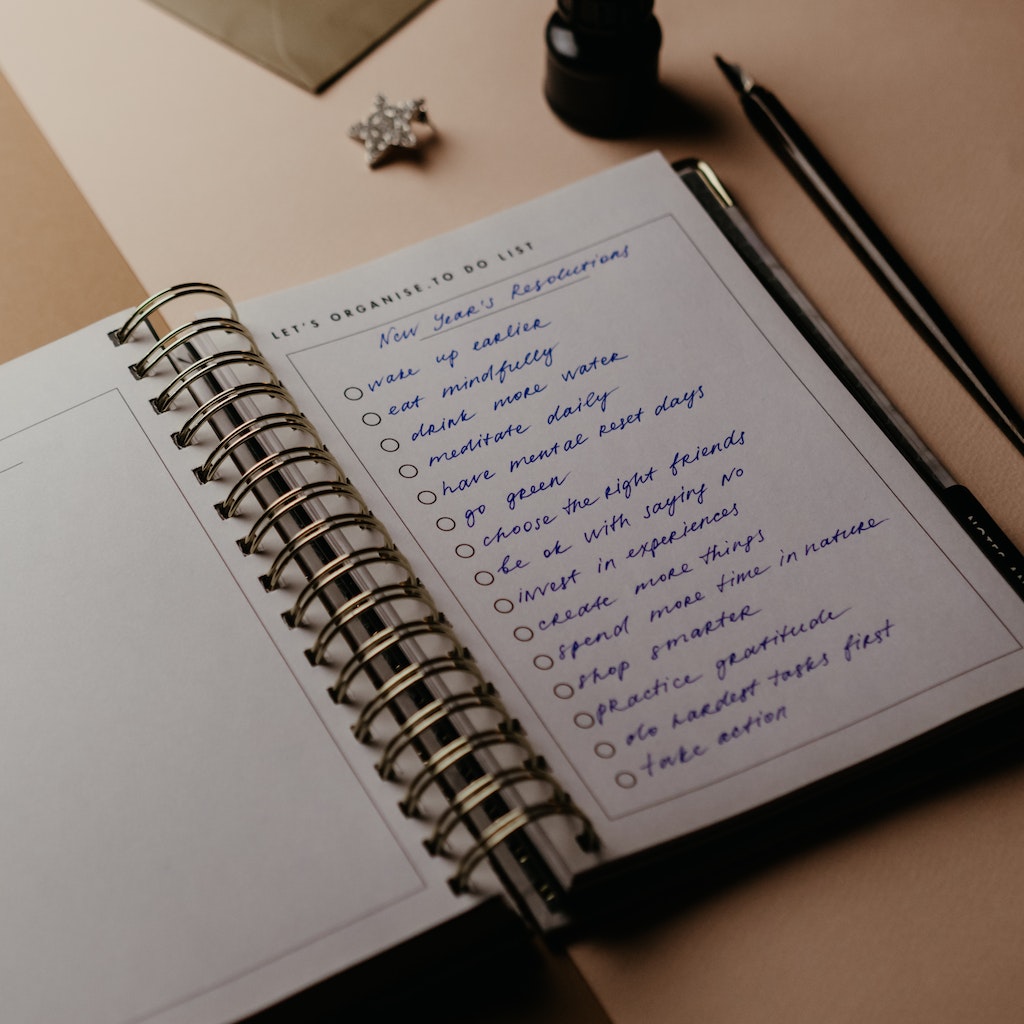 LET'S ORGANISE.TO DO LIST
New Year's Resolutions
wake up earlier
eat mindfully
drink more water
meditate daily
have mental reset days
go green
choose the right friends
be ok with saying NO
invest in experiences
create more things
spend more time in nature
shop smarter
practice gratitude
do hardest tasks first
take action